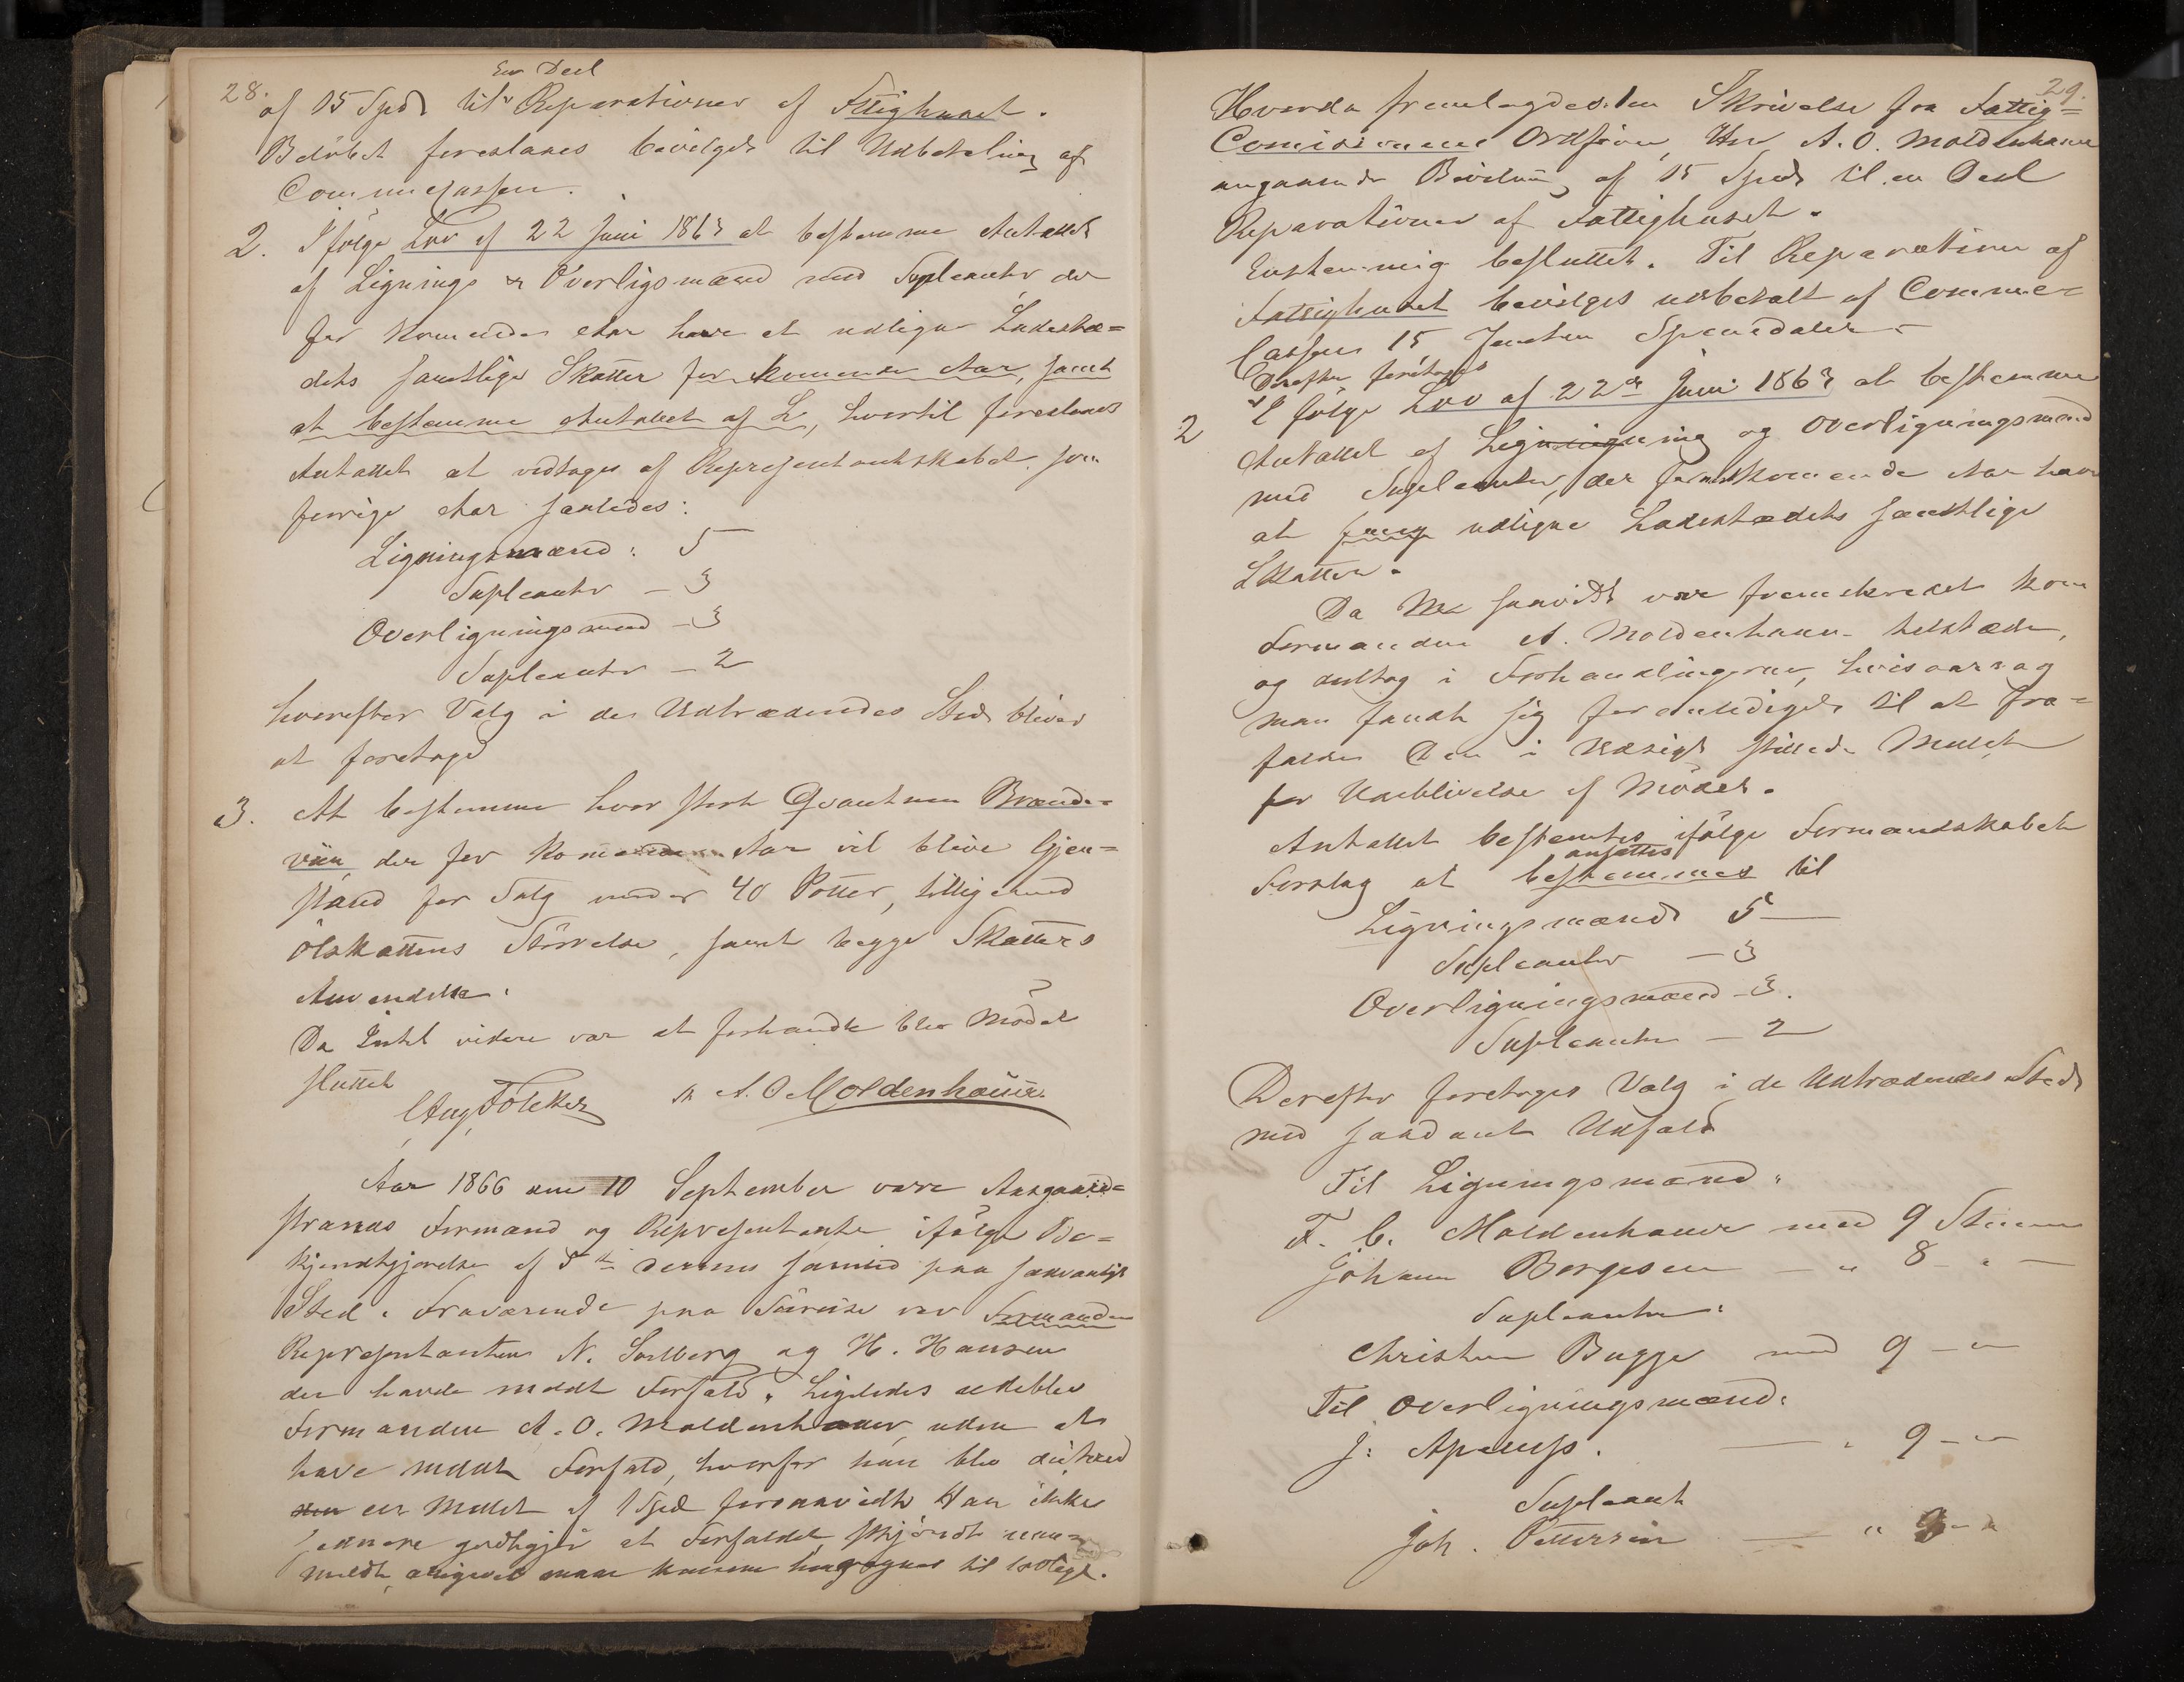 28.
En Deel
af 15 Spd til Reparationer af Fattighuset.
Beløbet foreslaaes bevilget til Udbetaling af
Communecassen.
2. Ifølge Lov af 22 Juni 1863 at bestemme Antallet
af Lignings & Overligsmænd med Suplenter, der
for kommende Aar have at udligne Ladeste=
dets samtlige Skatter for kommende Aar, samt
at bestemme Antallet af L, hvortil foreslaaes
Antallet at vedtages af Representantskabet som
forrige Aar saaledes:
Ligningsmænd: 5
Supleanter – 3
Overligningsmænd – 3
Supleanter – 2
hvorefter Valg i de Udtrædendes Sted bliver
at foretage
3. At bestemme hvor stort Qvantum Brænde-
viin der for kommende Aar vil blive Gjen=
stand for Salg under 40 Potter, tilligemed
Ølskattens Størrelse, samt begge Skatters
Anvendelse.
Da Intet videre var at forhandle blev Mødet
sluttet
A. O. Moldenhauer
Aar 1866 den 10 September vare Aasgaard=
strands Formænd og Representanter ifølge Be=
kjendtgjørelse af 5te dennes samled paa sædvanligt
Sted. Fraværende paa Søreise var Formanden
Representanten N. Solberg og H. Hansen
der havde meldt Forfald. Ligeledes udeblev
Formanden A. O. Moldenhauer, uden at
have meldt Forfald, hvorfor han blev dicteret
en Mulct af 1 Spd forsaavidt Han ikke
senere godtgjør at Forfaldet skjøndt uan=
meldt, alligevel maa kunne henregnes til lovligt.
29.
Hvorda fremlagdes en Skrivelse fra Fattig=
Comisionens Ordfører, Hr A. O. Moldenhauer
angaaende Bevilling af 15 Spd til en Deel
Reparationer af Fattighuset.
Enstemmig besluttet. Til Reparation af
Fattighuset bevilges udbetalt af Commune=
Cassen 15 femten Speciedaler –
Derefter foretoges
2 Ifølge Lov af 22de Juni 1863 at bestemme
Antallet af Ligning og Overligningsmænd
med Supleanter, der for kommende Aar have
at udligne Ladestædets samtlige
Skatter.
Da Man saavidt var fremskredet kom
Formanden A. Moldenhauer tilstæde,
og deeltog i Forhandlingerne, hvisaarsag
man fandt sig foranlediget til at fra=
falde den i Udsigt stillede Mulct
for Udeblivelse af Mødet.
Antallet bestemtes ifølge Formandskabets
ansættes
Forslag at bestemmes til
Ligningsmænd 5 –
Supleanter – 3
Overligningsmænd – 3.
Supleanter – 2
Derefter foretoges Valg i de Udtrædendes Sted
med saadant Udfald
Til Ligningsmænd.
F. C. Moldenhauer med 9 Stemmer
Johan Borgesen – " 8 – " –
Supleanter:
Christen Bugge med 9 – "
Til Overligningsmænd:
J: – " 9 – "
Supleant
Joh. Pettersen – " 9 – "